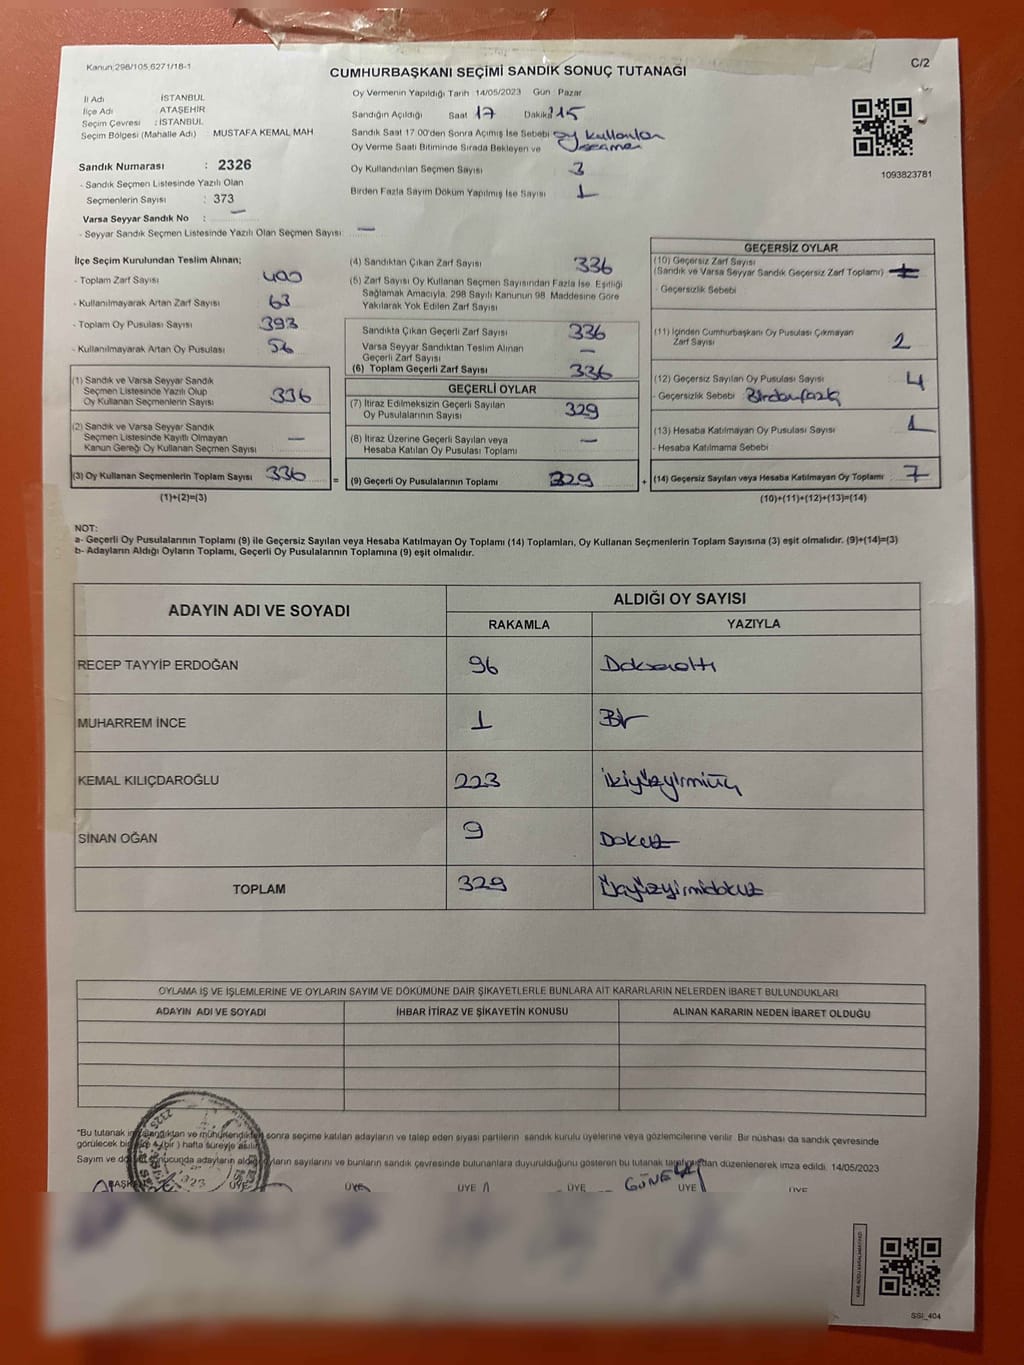 Kanun;298/105,6271/18-1
C/2
CUMHURBAŞKANI SEÇİMİ SANDIK SONUÇ TUTANAĞI
İl Adı : İSTANBUL
İlçe Adı : ATAŞEHİR
Seçim Çevresi : İSTANBUL
Seçim Bölgesi (Mahalle Adı) MUSTAFA KEMAL MAH
Sandık Numarası : 2326
- Sandık Seçmen Listesinde Yazılı Olan
Seçmenlerin Sayısı : 373
Varsa Seyyar Sandık No : —
- Seyyar Sandık Seçmen Listesinde Yazılı Olan Seçmen Sayısı: —
Oy Vermenin Yapıldığı Tarih 14/05/2023 Gün : Pazar
Sandığın Açıldığı Saat 17 Dakika 15
Sandık Saat 17.00'den Sonra Açımış İse Sebebi oy kullanılan
Oy Verme Saati Bitiminde Sırada Bekleyen ve
Oy Kullandırılan Seçmen Sayısı 3
Birden Fazla Sayım Döküm Yapılmış İse Sayısı 1
1093823781
İlçe Seçim Kurulundan Teslim Alınan;
- Toplam Zarf Sayısı 400
- Kullanılmayarak Artan Zarf Sayısı 63
- Toplam Oy Pusulası Sayısı 393
- Kullanılmayarak Artan Oy Pusulası 56
(1) Sandık ve Varsa Seyyar Sandık
Seçmen Listesinde Yazılı Olup
Oy Kullanan Seçmenlerin Sayısı 336
(2) Sandık ve Varsa Seyyar Sandık
Seçmen Listesinde Kayıtlı Olmayan
Kanun Gereği Oy Kullanan Seçmen Sayısı —
(3) Oy Kullanan Seçmenlerin Toplam Sayısı 336
(1)+(2)=(3)
(4) Sandıktan Çıkan Zarf Sayısı 336
(5) Zarf Sayısı Oy Kullanan Seçmen Sayısından Fazla İse, Eşitliği
Sağlamak Amacıyla, 298 Sayılı Kanunun 98. Maddesine Göre
Yakılarak Yok Edilen Zarf Sayısı
Sandıkta Çıkan Geçerli Zarf Sayısı 336
Varsa Seyyar Sandıktan Teslim Alınan
Geçerli Zarf Sayısı —
(6) Toplam Geçerli Zarf Sayısı 336
GEÇERLİ OYLAR
(7) İtiraz Edilmeksizin Geçerli Sayılan
Oy Pusulalarının Sayısı 329
(8) İtiraz Üzerine Geçerli Sayılan veya
Hesaba Katılan Oy Pusulası Toplamı —
= (9) Geçerli Oy Pusulalarının Toplamı 329
GEÇERSİZ OYLAR
(10) Geçersiz Zarf Sayısı
(Sandık ve Varsa Seyyar Sandık Geçersiz Zarf Toplamı)
- Geçersizlik Sebebi
(11) İçinden Cumhurbaşkanı Oy Pusulası Çıkmayan
Zarf Sayısı 2
(12) Geçersiz Sayılan Oy Pusulası Sayısı 4
- Geçersizlik Sebebi Birdenfazla
(13) Hesaba Katılmayan Oy Pusulası Sayısı 1
- Hesaba Katılmama Sebebi
+ (14) Geçersiz Sayılan veya Hesaba Katılmayan Oy Toplamı 7
(10)+(11)+(12)+(13)=(14)
NOT:
a- Geçerli Oy Pusulalarının Toplamı (9) ile Geçersiz Sayılan veya Hesaba Katılmayan Oy Toplamı (14) Toplamları, Oy Kullanan Seçmenlerin Toplam Sayısına (3) eşit olmalıdır. (9)+(14)=(3)
b- Adayların Aldığı Oyların Toplamı, Geçerli Oy Pusulalarının Toplamına (9) eşit olmalıdır.
ADAYIN ADI VE SOYADI ALDIĞI OY SAYISI
RAKAMLA YAZIYLA
RECEP TAYYİP ERDOĞAN 96 Doksanaltı
MUHARREM İNCE 1 Bir
KEMAL KILIÇDAROĞLU 223 ikiyüzyirmiüç
SİNAN OĞAN 9 Dokuz
TOPLAM 329 Üçyüzyirmidokuz
OYLAMA İŞ VE İŞLEMLERİNE VE OYLARIN SAYIM VE DÖKÜMÜNE DAİR ŞİKAYETLERLE BUNLARA AİT KARARLARIN NELERDEN İBARET BULUNDUKLARI
ADAYIN ADI VE SOYADI İHBAR İTİRAZ VE ŞİKAYETİN KONUSU ALINAN KARARIN NEDEN İBARET OLDUĞU
*Bu tutanak ve mühürlendikten sonra seçime katılan adayların ve talep eden siyasi partilerin sandık kurulu üyelerine veya gözlemcilerine verilir. Bir nüshası da sandık çevresinde
görülecek bir (bir) hafta süreyle asılır.
Sayım ve sonucunda adayların aldığı oyların sayılarını ve bunların sandık çevresinde bulunanlara duyurulduğunu gösteren bu tutanak tarafımızdan düzenlenerek imza edildi. 14/05/2023
BAŞKAN ÜYE ÜYE ÜYE ÜYE GÜNEŞ ÜYE ÜYE
SSI_404